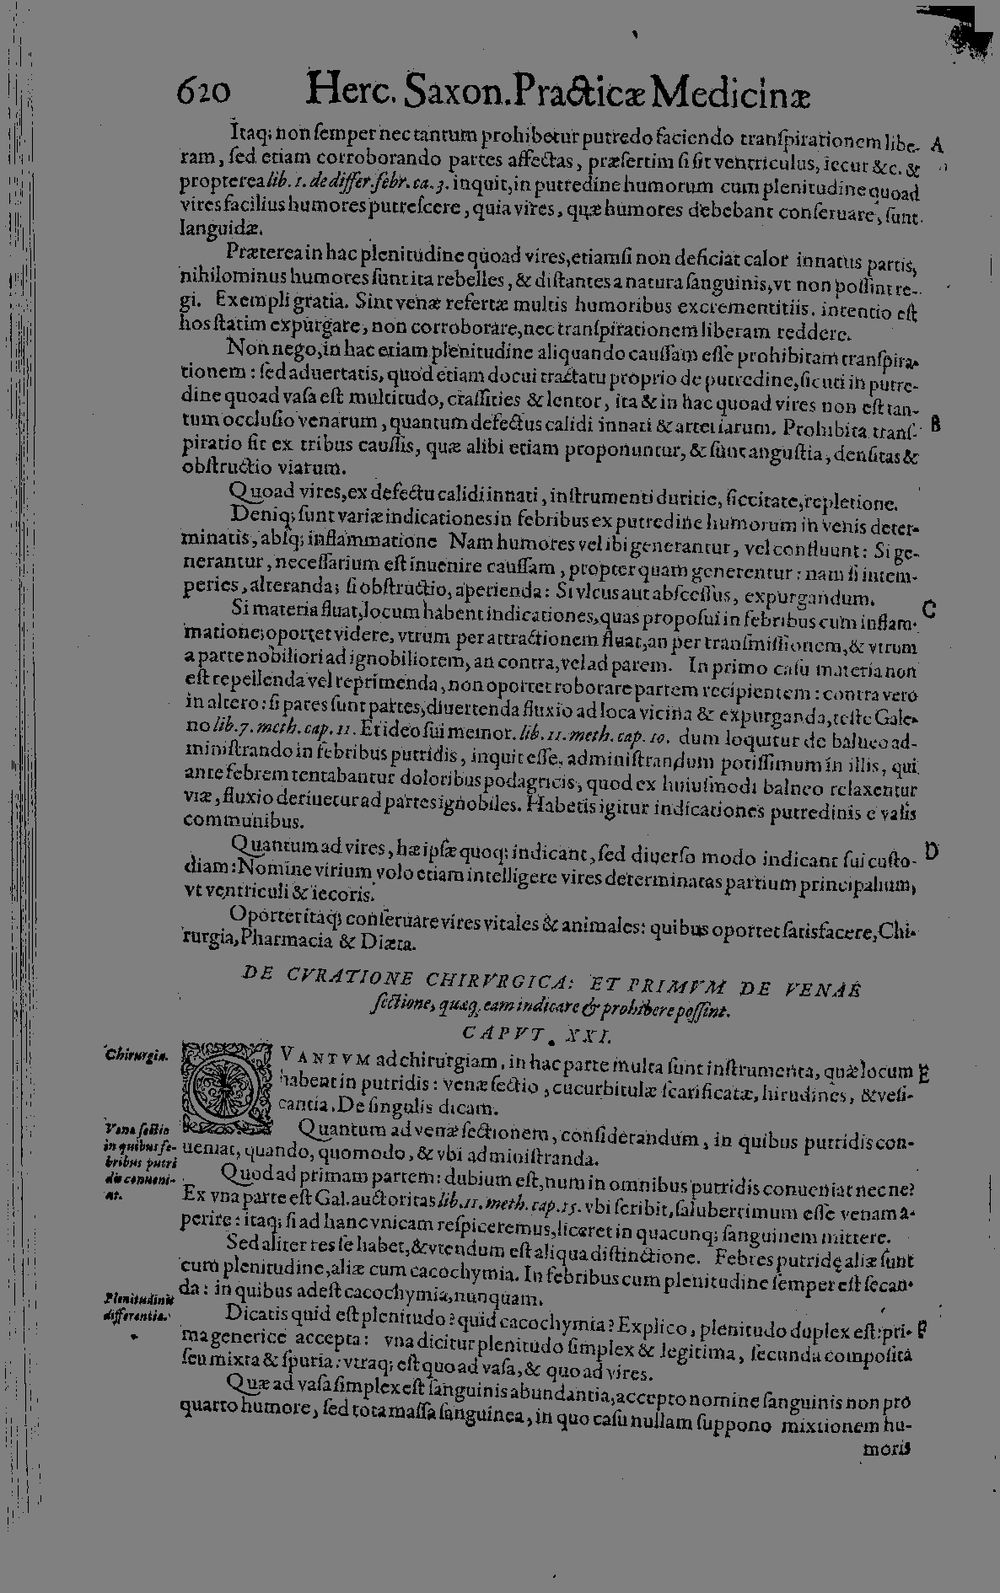 620 Herc. Saxon. Practicæ Medicinæ
Itaq; non ſemper nec tantum prohibetur putredo faciendo tranſpirationem libe- A
ram, ſed etiam corroborando partes affectas, præſertim ſi ſit ventriculus, iecur &c. &
propterea lib. 1. de differ. febr. ca. 3. inquit, in putredine humorum cum plenitudine quoad
vires facilius humores putreſcere, quia vires, quæ humores debebant conſeruare, ſunt
languidæ.
Præterea in hac plenitudine quoad vires, etiamſi non deficiat calor innatus partis,
nihilominus humores ſunt ita rebelles, & diſtantes a natura ſanguinis, vt non poſſint re-
gi. Exempli gratia. Sint venæ refertæ multis humoribus excrementitiis. intentio eſt
hos ſtatim expurgare, non corroborare, nec tranſpirationem liberam reddere.
Non nego, in hac etiam plenitudine aliquando cauſſam eſſe prohibitam tranſpira-
tionem: ſed aduertatis, quod etiam docui tractatu proprio de putredine, ſicuti in putre-
dine quoad vaſa eſt multitudo, craſſities & lentor, ita & in hac quoad vires non eſt tan-
tum occluſio venarum, quantum defectus calidi innati & arteriarum. Prohibita tranſ- B
piratio fit ex tribus cauſſis, quæ alibi etiam proponuntur, & ſunt anguſtia, denſitas &
obſtructio viarum.
Quoad vires, ex defectu calidi innati, inſtrumenti duritie, ſiccitate, repletione.
Deniq; ſunt variæ indicationes in febribus ex putredine humorum in venis deter-
minatis, abſq; inflammatione Nam humores vel ibi generantur, vel confluunt: Si ge-
nerantur, neceſſarium eſt inuenire cauſſam, propter quam generentur: nam ſi intem-
peries, alteranda; ſi obſtructio, aperienda: Si vlcus aut abſceſſus, expurgandum.
Si materia fluat, locum habent indicationes, quas propoſui in febribus cum inflam- C
matione; oportet videre, vtrum per attractionem fluat, an per tranſmiſſionem, & vtrum
a parte nobiliori ad ignobiliorem, an contra, vel ad parem. In primo caſu materia non
eſt repellenda vel reprimenda, non oportet roborare partem recipientem: contra vero
in altero: ſi pares ſunt partes, diuertenda fluxio ad loca vicina & expurganda, teſte Gale-
no lib. 7. meth. cap. 11. Et ideo ſui memor. lib. 11. meth. cap. 10. dum loquitur de balneo ad-
miniſtrando in febribus putridis, inquit eſſe, adminiſtrandum potiſſimum in illis, qui
ante febrem tentabantur doloribus podagricis, quod ex huiuſmodi balneo relaxentur
viæ, fluxio deriuetur ad partes ignobiles. Habetis igitur indicationes putredinis e vaſis
communibus.
Quantum ad vires, hæ ipſæ quoq; indicant, ſed diuerſo modo indicant ſui cuſto- D
diam: Nomine virium volo etiam intelligere vires determinatas partium principalium,
vt ventriculi & iecoris.
Oportet itaq; conſeruare vires vitales & animales: quibus oportet ſatisfacere, Chi-
rurgia, Pharmacia & Diæta.
DE CVRATIONE CHIRVRGICA: ET PRIMVM DE VENAE
ſectione, quæq. eam indicare & prohibere poſſint.
CAPVT. XXI.
Chirurgia.
QVANTVM ad chirurgiam, in hac parte multa ſunt inſtrumenta, quæ locum E
habent in putridis: venæ ſectio, cucurbitulæ ſcarificatæ, hirudines, & veſi-
cantia. De ſingulis dicam.
Vena ſectio
in quibus fe-
bribus putri
dis conueni-
at.
Quantum ad venæ ſectionem, conſiderandum, in quibus putridis con-
ueniat, quando, quomodo, & vbi adminiſtranda.
Quod ad primam partem: dubium eſt, num in omnibus putridis conueniat nec ne?
Ex vna parte eſt Gal. auctoritas lib. 11. meth. cap. 15. vbi ſcribit, ſaluberrimum eſſe venam a-
perire: itaq; ſi ad hanc vnicam reſpiceremus, liceret in quacunq; ſanguinem mittere.
Sed aliter res ſe habet, & vtendum eſt aliqua diſtinctione. Febres putridę aliæ ſunt
cum plenitudine, aliæ cum cacochymia. In febribus cum plenitudine ſemper eſt ſecan-
da: in quibus adeſt cacochymia, nunquam.
Plenitudinis
differentia.
Dicatis quid eſt plenitudo? quid cacochymia? Explico, plenitudo duplex eſt: pri- F
ma generice accepta: vna dicitur plenitudo ſimplex & legitima, ſecunda compoſita
ſeu mixta & ſpuria: vtraq; eſt quo ad vaſa, & quo ad vires.
Quæ ad vaſa ſimplex eſt ſanguinis abundantia, accepto nomine ſanguinis non pro
quarto humore, ſed tota maſſa ſanguinea, in quo caſu nullam ſuppono mixtionem hu-
moris